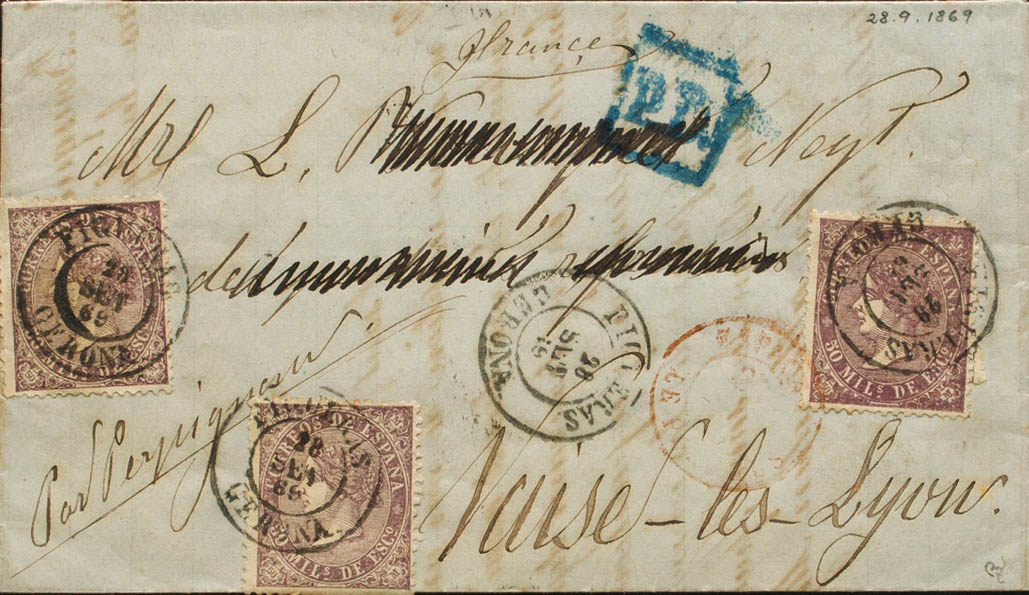 28.9.1869
France
P.P.
Mrs L. Neyt.
FIGUERAS
28
SET
69
GERONA
CORREOS DE ESPAÑA
50 MILS DE ESCO
FIGUERAS
28
SET
69
GERONA
CORREOS DE ESPAÑA
50 MILS DE ESCO
FIGUERAS
28
SET
69
GERONA
Par Perpignan
FIGUERAS
28
SET
69
GERONA
CORREOS DE ESPAÑA
50 MILS DE ESCO
Vaise-les-Lyon.